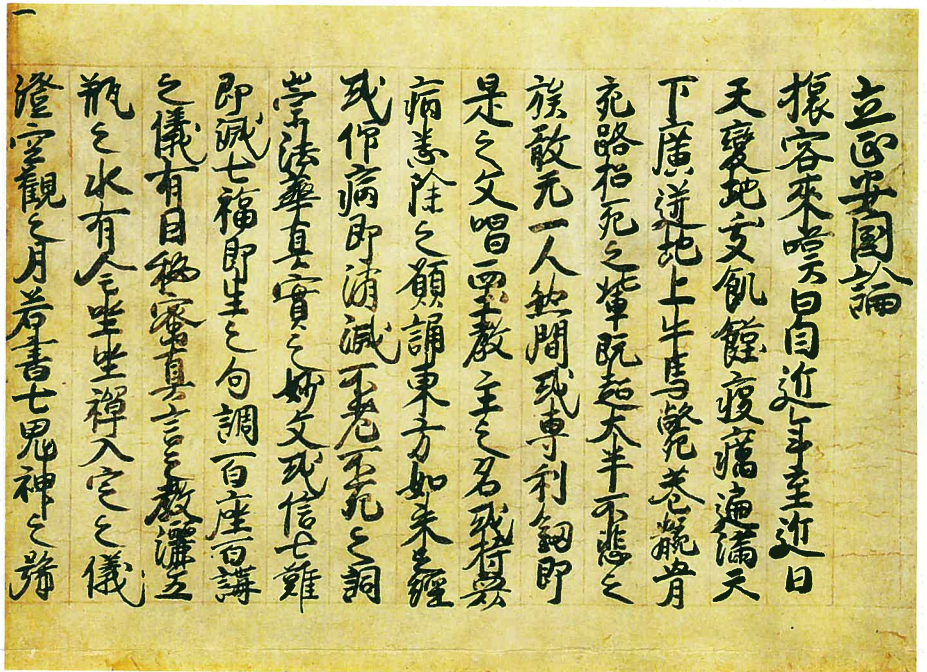 一
立正安国論
旅客來嘆曰自近年至近日
天變地夭飢饉疫癘遍滿天
下廣迸地上牛馬斃巷骸骨
充路招死之輩既超大半不悲之
族敢无一人然間或專利釼即
是之文唱西土教主之名或持衆
病悉除之願誦東方如来之經
或仰病即消滅不老不死之詞
崇法華真實之妙文或信七難
即滅七福即生之句調百座百講
之儀有因秘密真言之教灑五
瓶之水有全坐禪入定之儀
澄空觀之月若書七鬼神之號